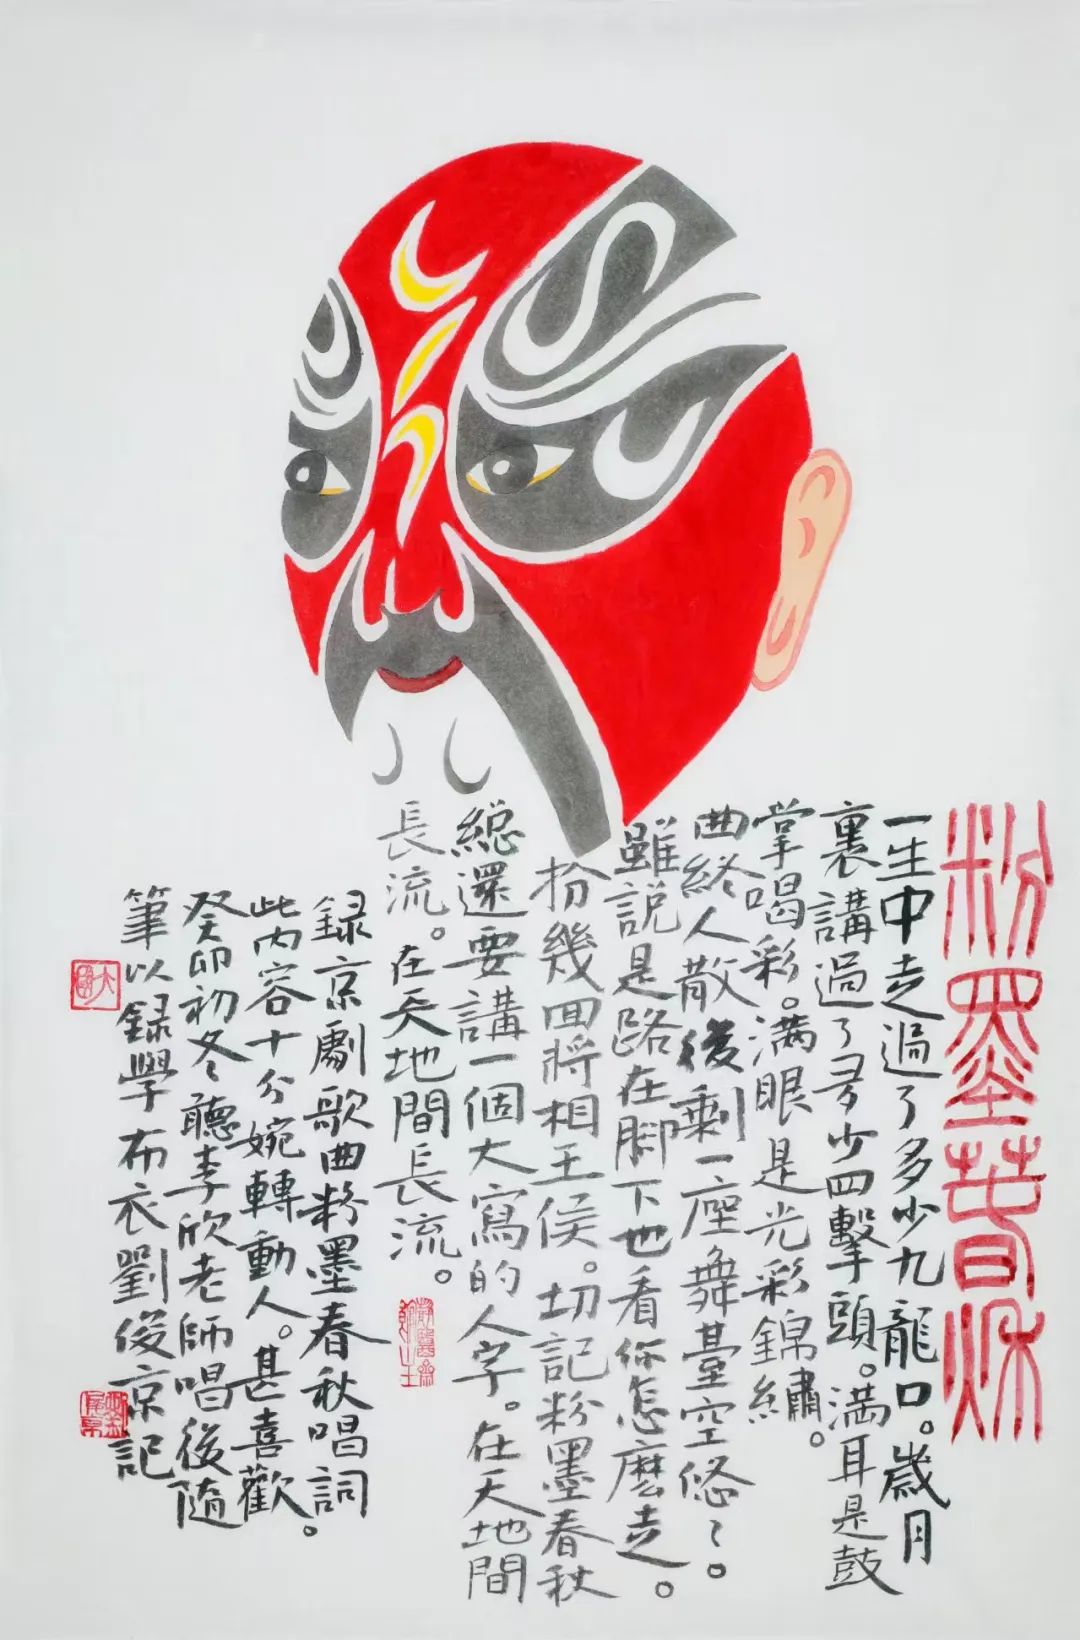 粉墨春秋
一生中走過了多少九龍口。歲月
裏講過了多少四擊頭。滿耳是鼓
掌喝彩。滿眼是光彩錦繡。
曲終人散後剩一座舞臺空悠〻。
雖説是路在脚下也看你怎麽走。
扮幾回將相王侯。切記粉墨春秋
總還要講一個大寫的人字。在天地間
長流。在天地間長流。
録京劇歌曲粉墨春秋唱詞
此内容十分婉轉動人。甚喜歡。
癸卯初冬聽李欣老師唱後隨
筆以録學布衣劉俊京記